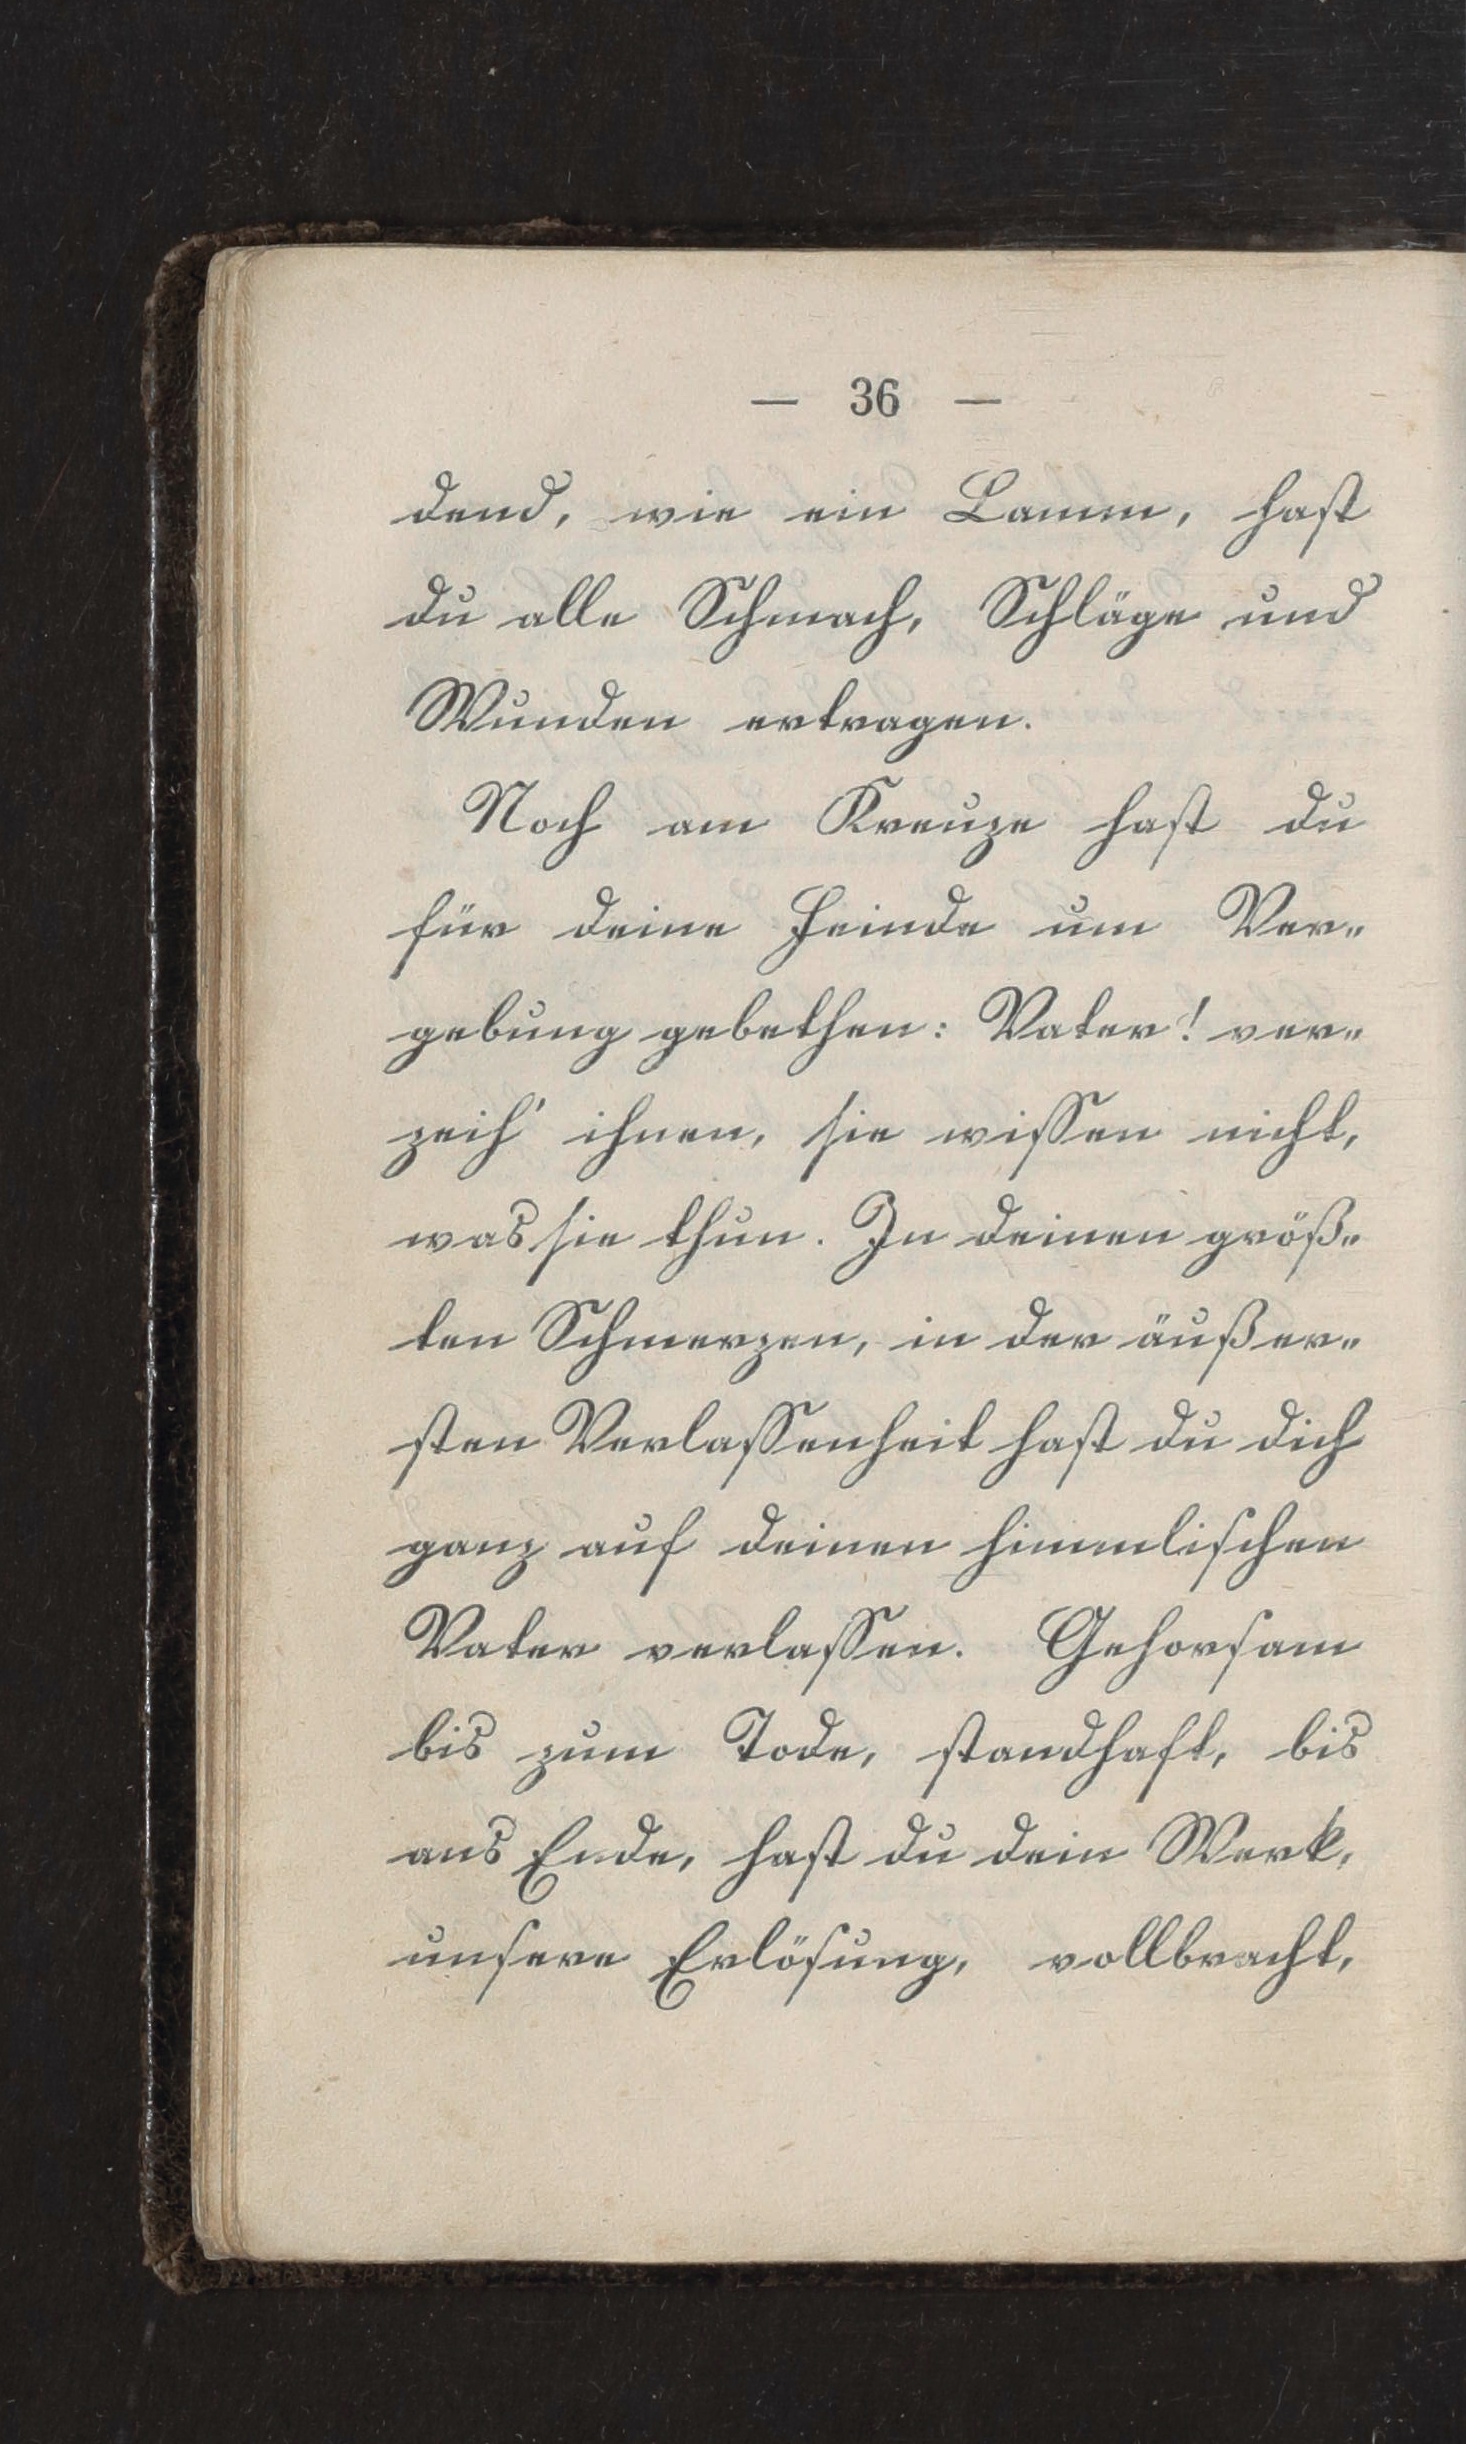 — 36 —
dend, wie ein Lamm, hast
du alle Schmach, Schläge und
Wunden ertragen.
Noch am Kreuze hast du
für deine Feinde um Ver-
gebung gebethen: Vater! ver-
zeih' ihnen, sie wissen nicht,
was sie thun. In deinen größ-
ten Schmerzen, in der äußer-
sten Verlassenheit hast du dich
ganz auf deinen himmlischen
Vater verlassen. Gehorsam
bis zum Tode, standhaft, bis
ans Ende, hast du dein Werk,
unsere Erlösung, vollbracht,